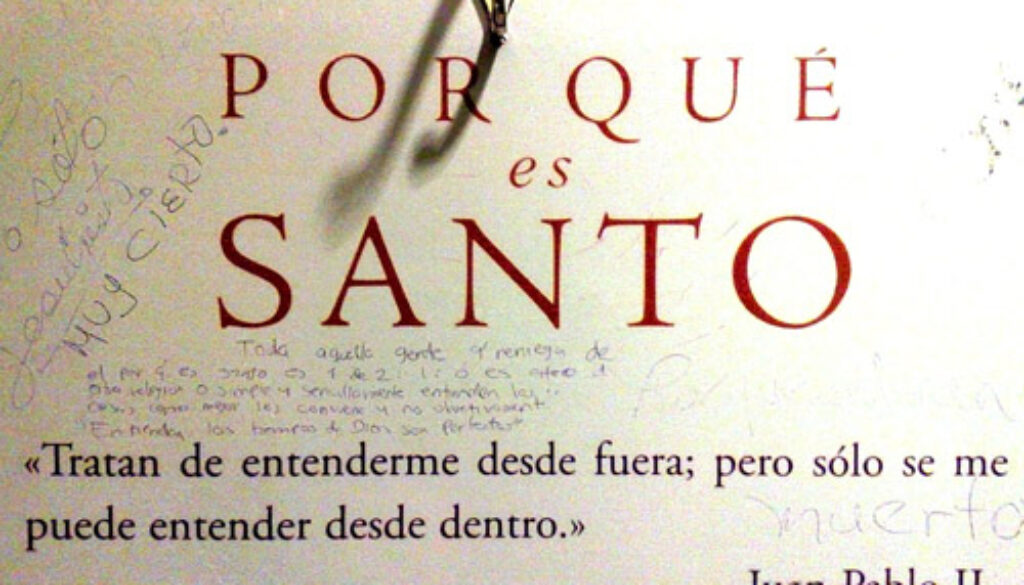 POR QUÉ
es
SANTO
o sólo
Jesucristo
MUY CIERTO.
Toda aquella gente q' reniega de
el por q es santo es 1 de 2: 1: ó es ateo
religion o simple y sencillamente entienden las
cosas como mejor les conviene y no objetivament
"Entiendan los tiempos de Dios son perfectos"
«Tratan de entenderme desde fuera; pero sólo se me
puede entender desde dentro.»
muerto
Juan Pablo II